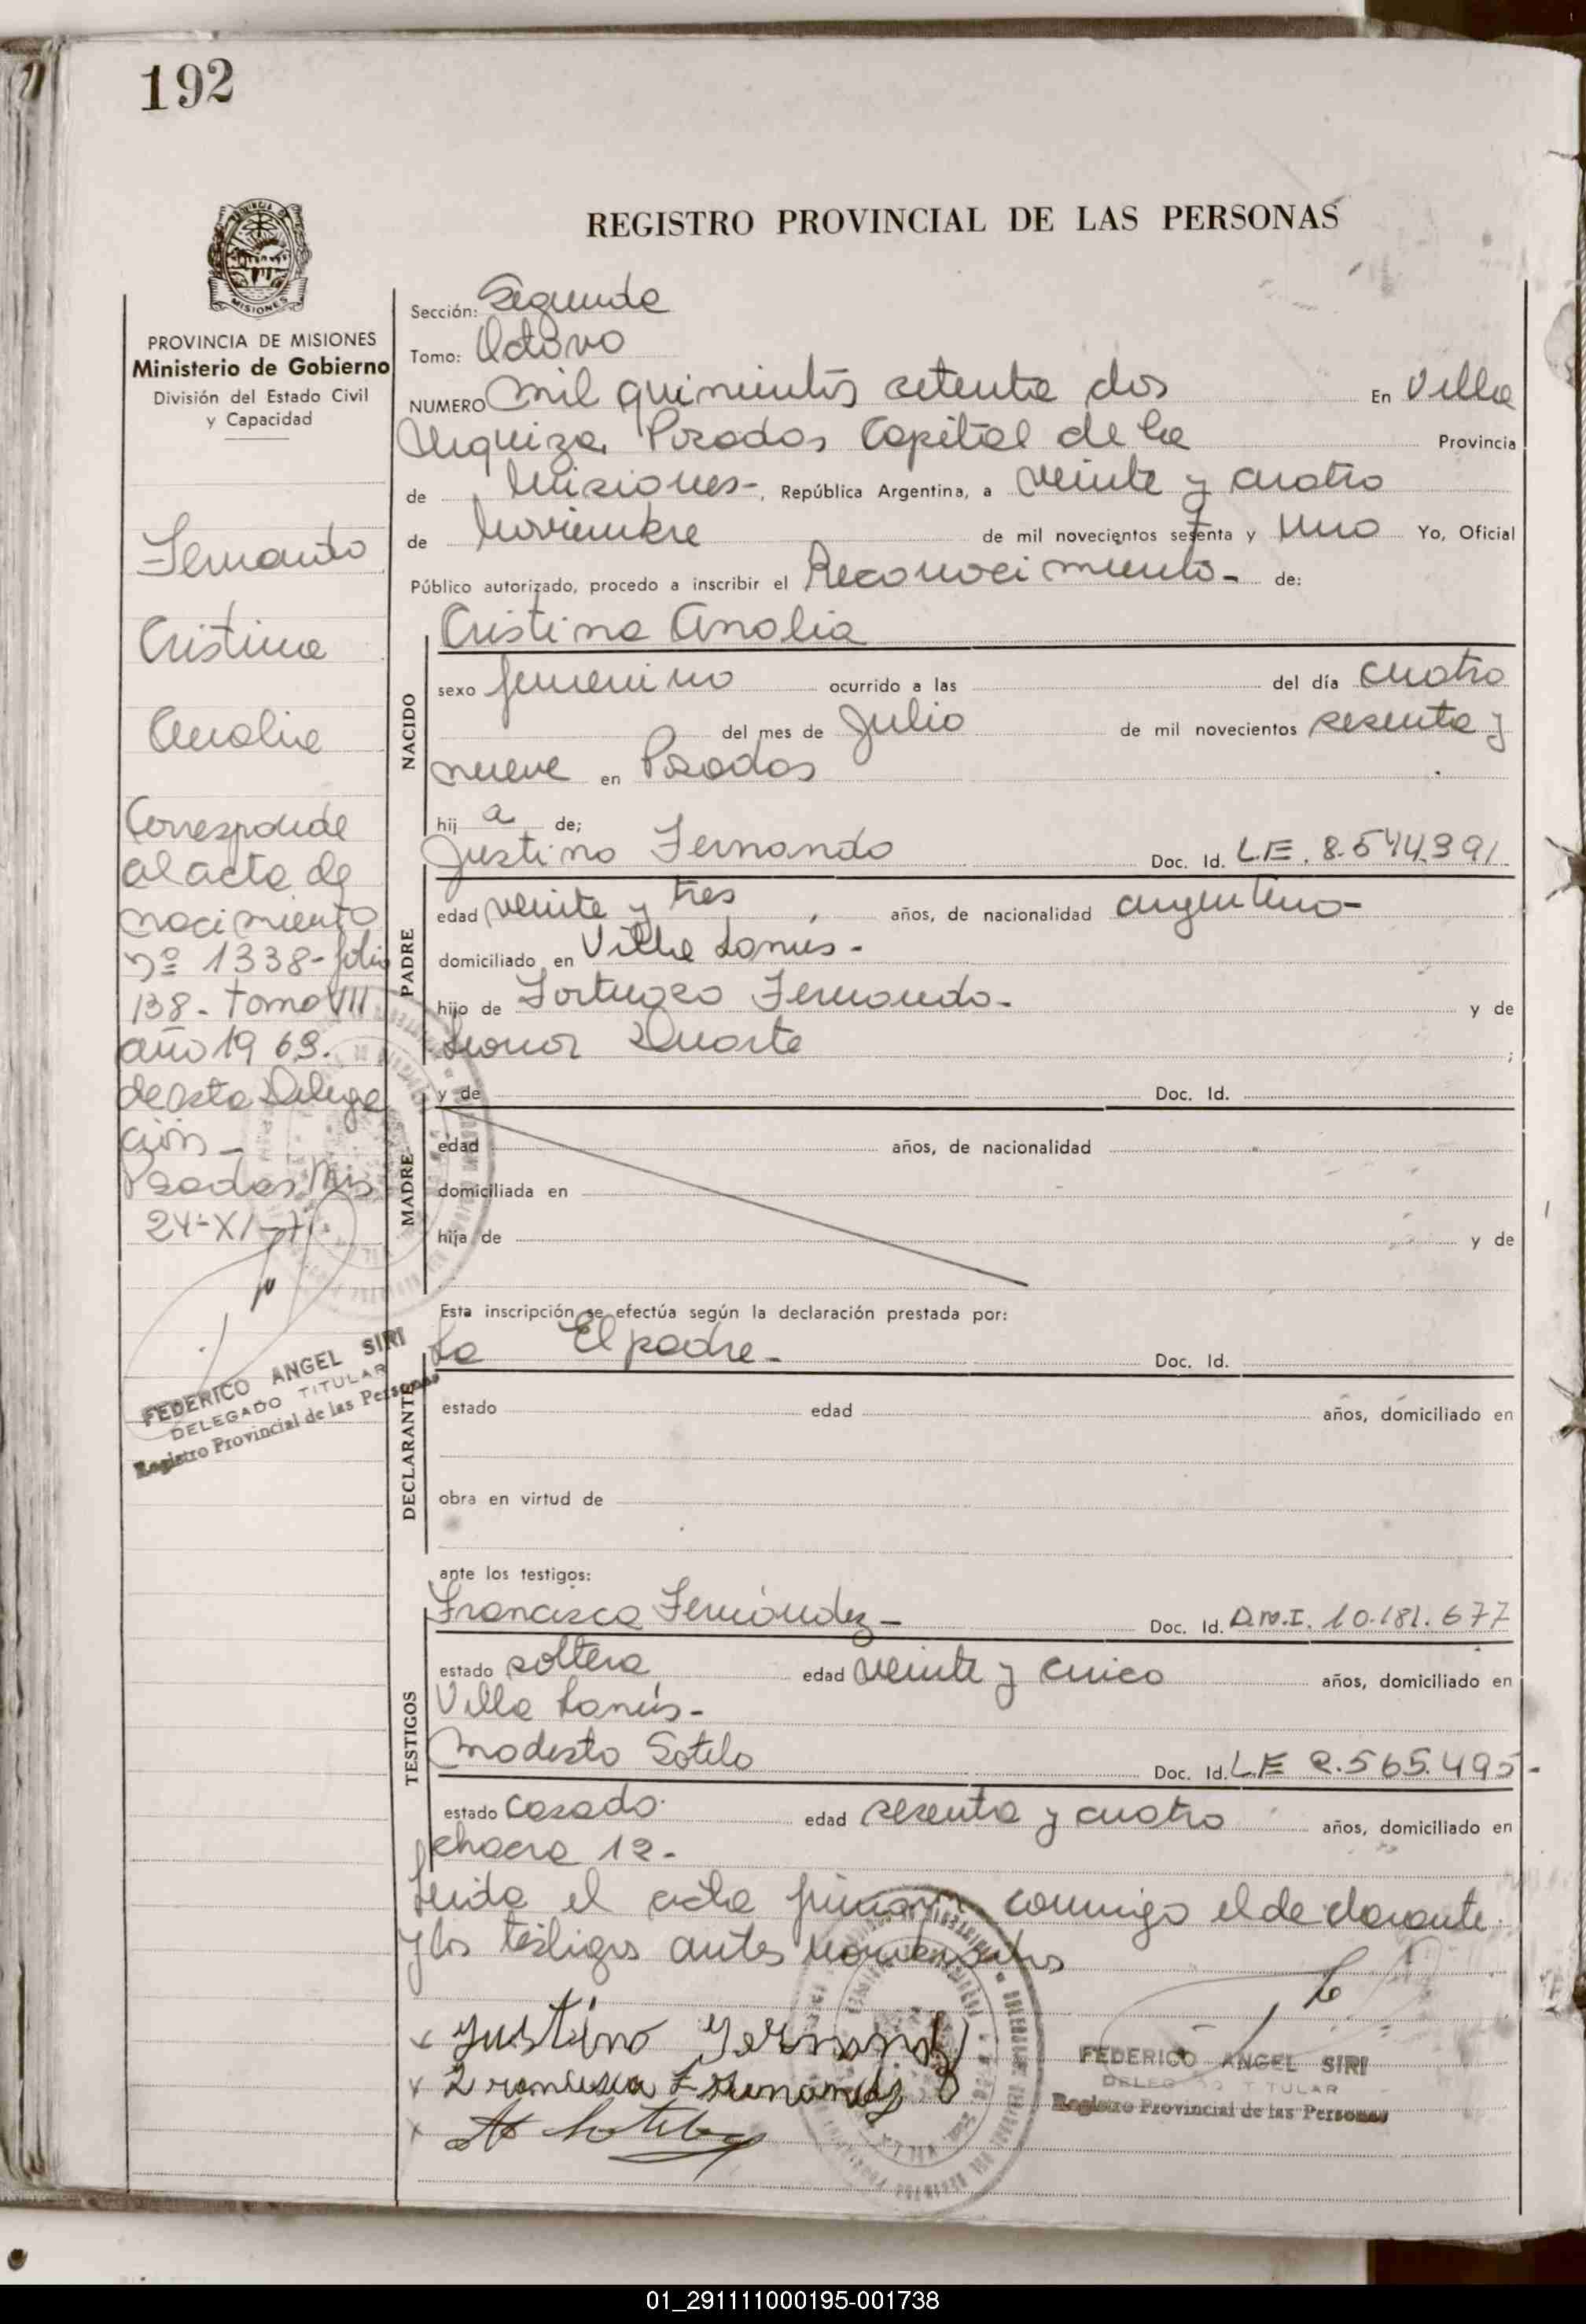 192
REGISTRO PROVINCIAL DE LAS PERSONAS
MISIONES
PROVINCIA DE MISIONES
Ministerio de Gobierno
División del Estado Civil
y Capacidad
Fernando
Cristina
Analia
Corresponde
al acta de
nacimiento
nº 1338-folio
138-tomo VII
año 1969.
de esta Delega
ción -
Posadas Mis
24-XI-71
FEDERICO ANGEL SIRI
DELEGADO TITULAR
Registro Provincial de las Personas
Sección: Segunda
Tomo: Octavo
NUMERO mil quinientos setenta dos En Villa
Urquiza, Posadas Capital de la Provincia
de Misiones-, República Argentina, a veinte y cuatro
de Noviembre de mil novecientos setenta y uno Yo, Oficial
Público autorizado, procedo a inscribir el Reconocimiento- de:
NACIDO
Cristina Analia
sexo femenino ocurrido a las del día cuatro
del mes de Julio de mil novecientos sesenta y
nueve en Posadas
hij a de;
PADRE
Justino Fernando Doc. Id. L.E. 8.544.391
edad veinte y tres años, de nacionalidad argentino-
domiciliado en Villa Lanús-
hijo de Fernando- y de
Leonor Duarte ;
MADRE
y de Doc. Id.
edad años, de nacionalidad
domiciliada en
hija de y de
Esta inscripción se efectúa según la declaración prestada por:
DECLARANTE
La El padre- Doc. Id.
estado edad años, domiciliado en
obra en virtud de
ante los testigos:
TESTIGOS
Francisca Fernández- Doc. Id. D.N.I. 10.181.677
estado soltera edad veinte y cinco años, domiciliado en
Villa Lanús-
Modesto Sotelo Doc. Id. L.E 2.565.495-
estado casado edad sesenta y cuatro años, domiciliado en
chacra 12-
Leida el acta firman conmigo el declarante
y los testigos antes nombrados
x Justino Fernando
x Francisca Fernandez
x M Sotelo
FEDERICO ANGEL SIRI
DELEGADO TITULAR
Registro Provincial de las Personas
01_291111000195-001738